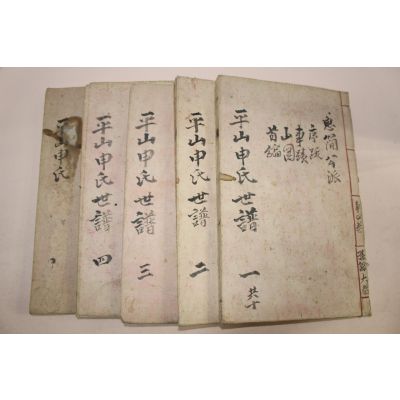 惠簡公派
序跋
事蹟
山圖
首編
平山申氏世譜 一 共十
平山申氏世譜 二
平山申氏世譜 三
平山申氏世譜 四
平山申氏